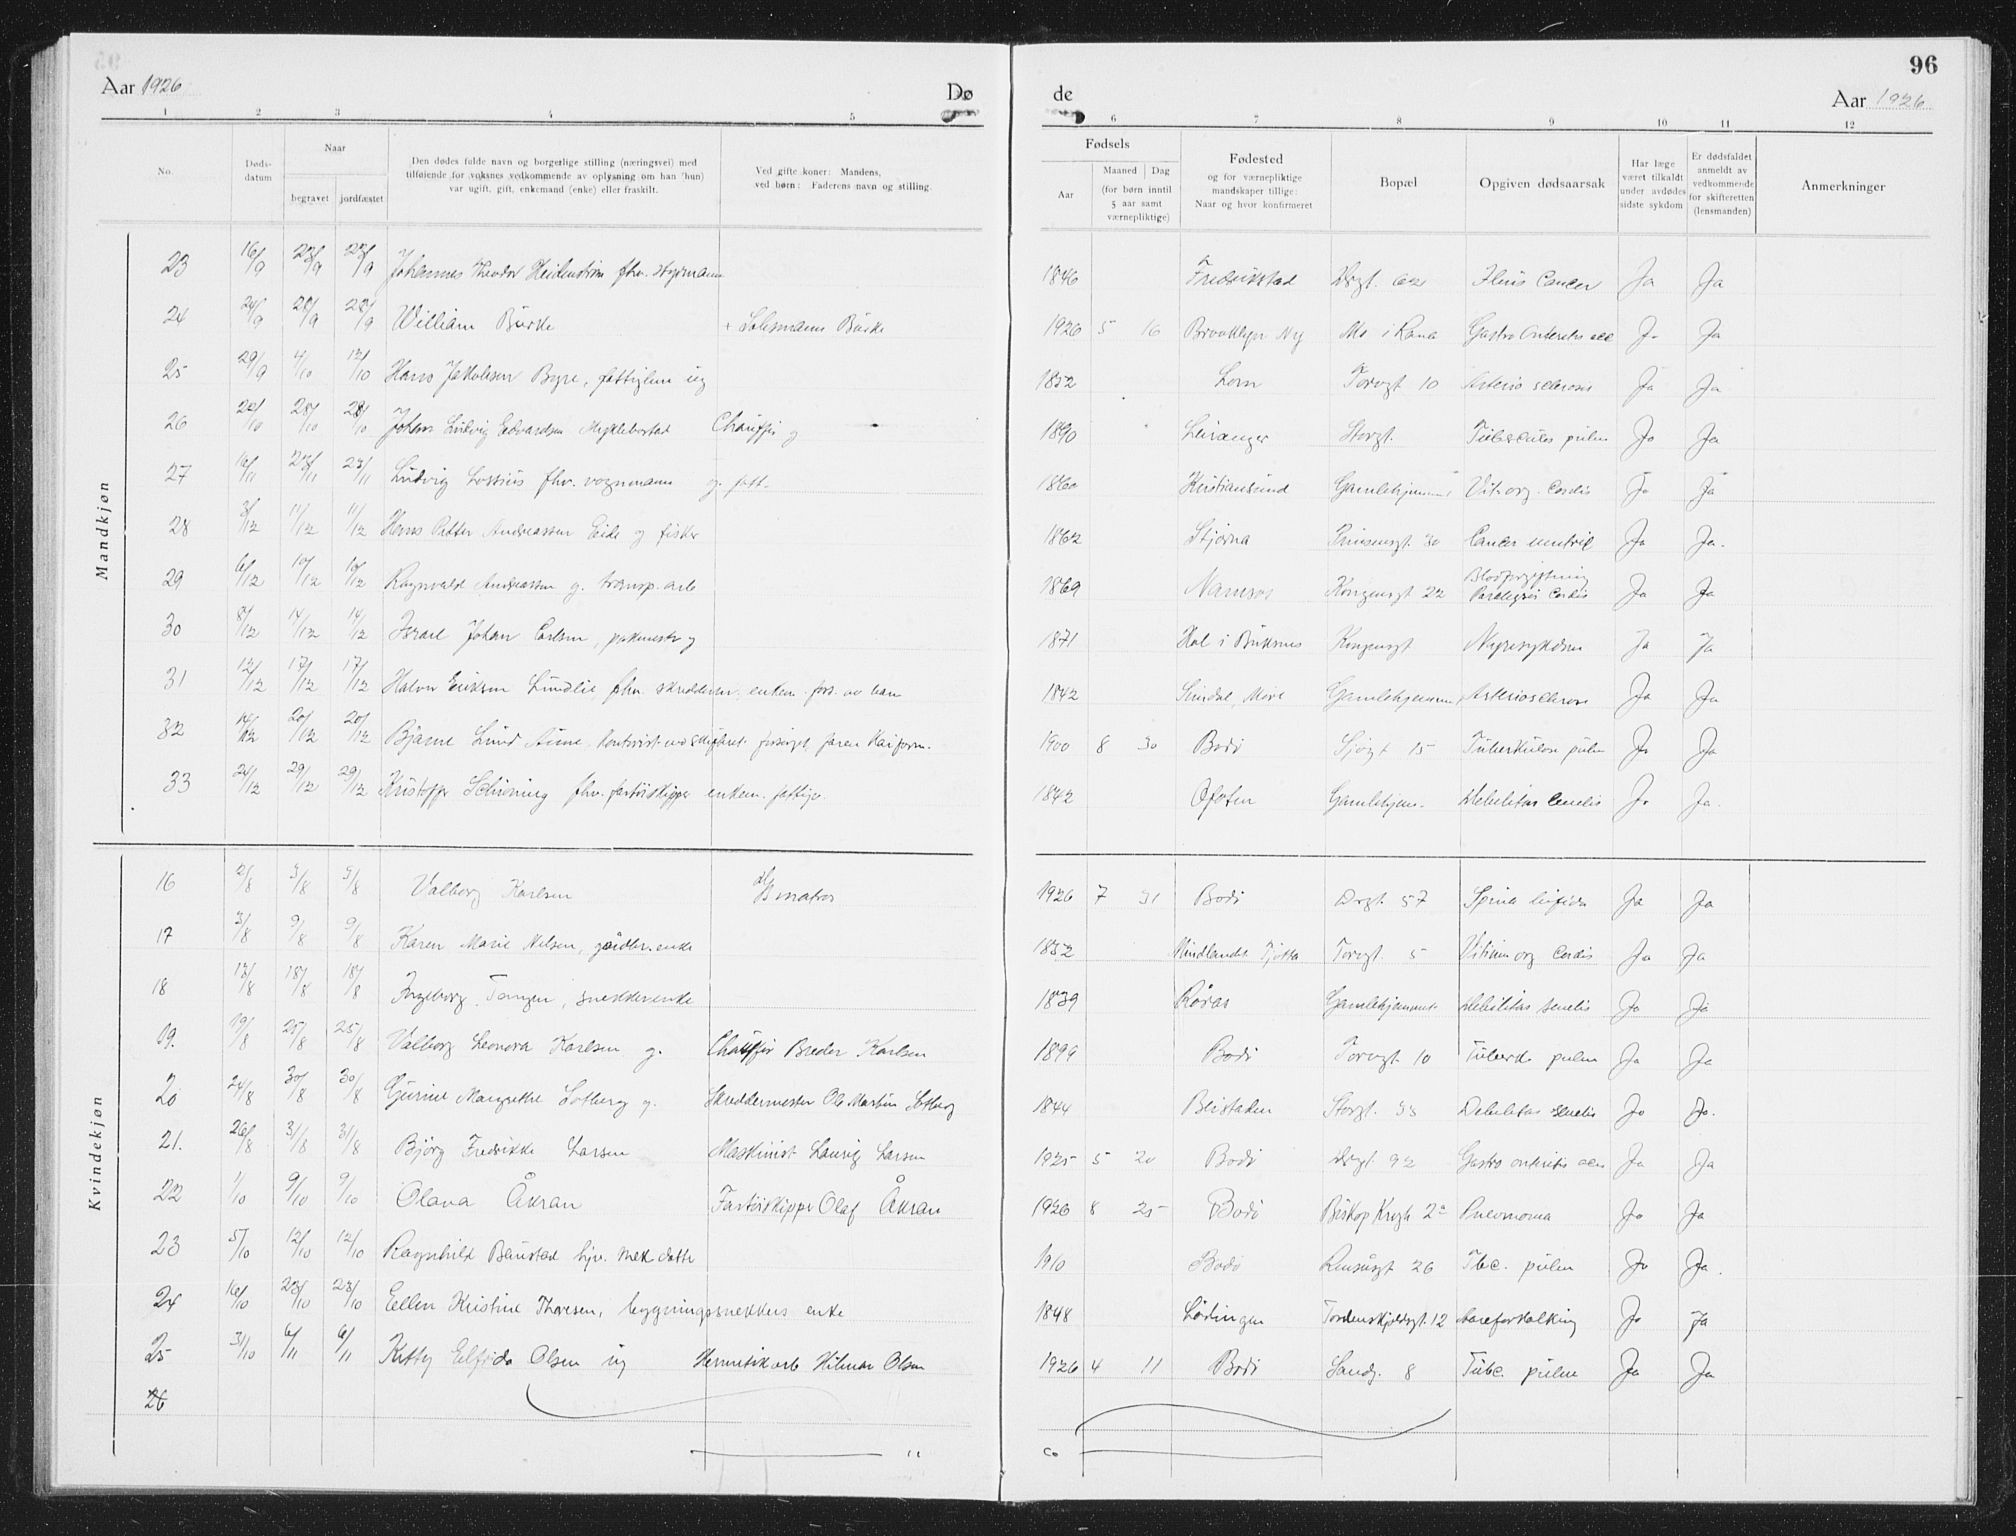 96
Aar 1926 Dø de Aar 1926
1 2 3 4 5 6 7 8 9 10 11 12
No.
Døds-
datum
Naar
begravet jordfæstet
Den dødes fulde navn og borgerlige stilling (næringsvei) med
tilføiende for voksnes vedkommende av oplysning om han (hun)
var ugift, gift, enkemand (enke) eller fraskilt.
Ved gifte koner: Mandens,
ved børn: Faderens navn og stilling.
Fødsels
Aar
Maaned Dag
(for børn inntil
5 aar samt
værnepliktige)
Fødested
og for værnepliktige
mandskaper tillige:
Naar og hvor konfirmeret
Bopæl
Opgiven dødsaarsak
Har læge
været tilkaldt
under avdødes
sidste sykdom
Er dødsfaldet
anmeldt av
vedkommende
for skifteretten
(lensmanden)
Anmerkninger
Mandkjøn
23 16/9 23/9 25/9 Johannes Theodor fhv. styrmann 1846 Fredrikstad Cancer Ja Ja
24 24/9 28/9 28/9 William Burke + Burke 1926 5 16 Brooklyn Ny Mo i Rana Gastro Ja Ja
25 29/9 4/10 12/10 Hans Jakobsen Byre, ug 1852 Lom Torvgt 10 Arterio sclerosis Ja Ja
26 22/10 28/10 28/10 Johan Ludvig Edvardsen Myklebostad Chauffør g 1890 Leiranger Storgt. pulm Ja Ja
27 16/11 23/11 23/11 Ludvig Lossius fhv. vognmann g. fatt. 1860 Kristiansund Vit. org. Cordis Ja Ja
28 3/12 11/12 11/12 Hans Petter Andreassen Eide g fisker 1862 Stjørna Prinsensgt. 30 Cancer ventric Ja Ja.
29 6/12 10/12 10/12 Ragnvald Andreassen g. transp. arb 1869 Namsos Kongensgt 22 Blodforgiftning
Paralysis Cordis Ja Ja
30 8/12 14/12 14/12 Israel Johan Carlsen, g 1871 Hol i Buksnes Kongensgt Nyresykdom Ja Ja
31 12/12 17/12 17/12 Halvor Eriksen Lundlie, fhv. skredder, enkem. fors. av 1842 Gamlehjemmet Arteriosclerose Ja Ja
32 14/12 20/12 20/12 Bjarne Lund Aune. faren 1900 8 30 Bodø Sjøgt 15 Tuberkulose pulm Ja Ja
33 24/12 29/12 29/12 Kristoffer Schiøning fhv. fartøiskipper enkem. fattigv. 1842 Ofoten Gamlehjem. Debilitas senilis Ja Ja.
Kvindekjøn
16 2/8 5/8 5/8 Valborg Karlsen 1926 7 31 Bodø Drgt. 57 Spina bifida Ja Ja
17 3/8 9/8 9/8 Karen Marie Nilsen, gårdbr.enke 1832 Mindlandet Tjøtta Torvgt. 5 Vitium org Cordis Ja Ja
18 13/8 18/8 18/8 Ingeborg Tangen, snekkerenke 1839 Røros Gamlehjemmet Debilitas senilis Ja Ja
19. 19/8 25/8 25/8 Valborg Leonora Karlsen g. Chauffør Breder Karlsen 1899 Bodø Torvgt 10 pulm Ja Ja
20 24/8 30/8 30/8 Gurine Margrethe Sotberg g. Skreddermester Ole Martin Sotberg 1844 Beistaden Storgt. 33 Debilitas senilis Ja Ja.
21. 26/8 31/8 31/8 Bjørg Fredrikke Larsen Maskinist Laurig Larsen 1925 5 20 Bodø 92 Gastro Ja Ja
22 1/10 9/10 9/10 Olava Åkran Fartøiskipper Olaf Åkran 1926 8 25 Bodø Biskop Krogh 2a Pneumonia Ja Ja
23 5/10 12/10 12/10 Ragnhild 1910 Bodø Rensåsgt 26 Tbc. pulm Ja Ja.
24 16/10 23/10 23/10 Ellen Kristine Thoresen, bygningssnekkers enke 1848 Lødingen Tordenskjoldsgt. 12 Aareforkalking Ja Ja
25 31/10 6/11 6/11 Kitty Elfrida Olsen ug Hermetikarb Hilmar Olsen 1926 4 11 Bodø Sandg. 8 Tubc. pulm Ja Ja
26